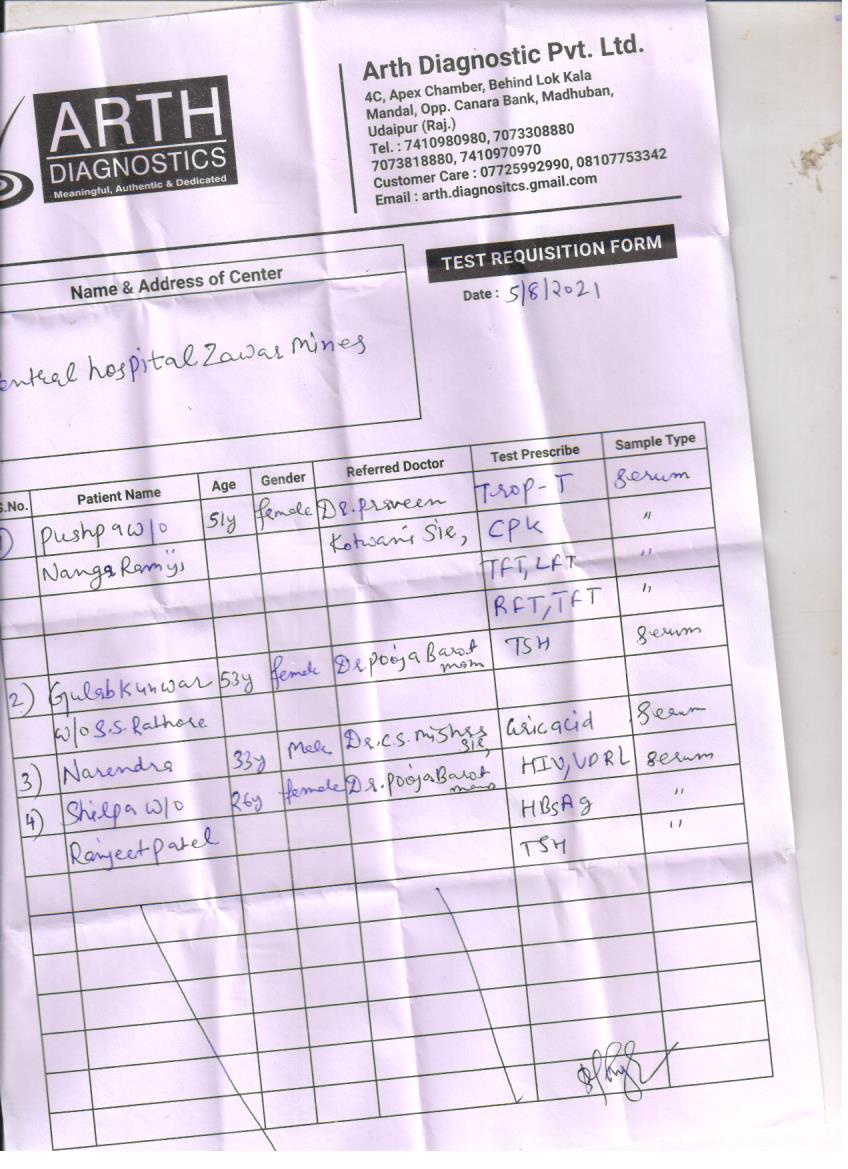 ARTH
DIAGNOSTICS
Meaningful, Authentic & Dedicated
Arth Diagnostic Pvt. Ltd.
4C, Apex Chamber, Behind Lok Kala
Mandal, Opp. Canara Bank, Madhuban,
Udaipur (Raj.)
Tel. : 7410980980, 7073308880
7073818880, 7410970970
Customer Care : 07725992990, 08107753342
Email : arth.diagnositcs.gmail.com
TEST REQUISITION FORM
Date : 5/8/2021
Name & Address of Center
entral hospital Zawar Mines
S.No. Patient Name Age Gender Referred Doctor Test Prescribe Sample Type
1) Pushpa w/o 51y female Dr. Praveen Trop-T Serum
Nanga Ramji Kotwani Sir, CPK "
TFT, LFT "
RFT, TFT "
2) Gulab Kunwar 53y female Dr. Pooja Barot mam TSH Serum
w/o S.S. Rathore
3) Narendra 33y Male Dr. C.S. Mishra Sir, Uric acid Serum
4) Shilpa w/o 26y female Dr. Pooja Barot mam HIV, VDRL Serum
HBsAg "
Ranjeet Patel TSH "